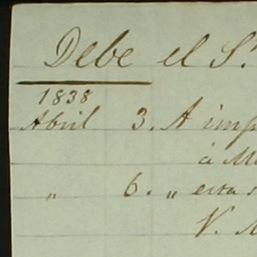 Debe el S.
1838
Abril 3. A imp
á M
" 6. "
V. M